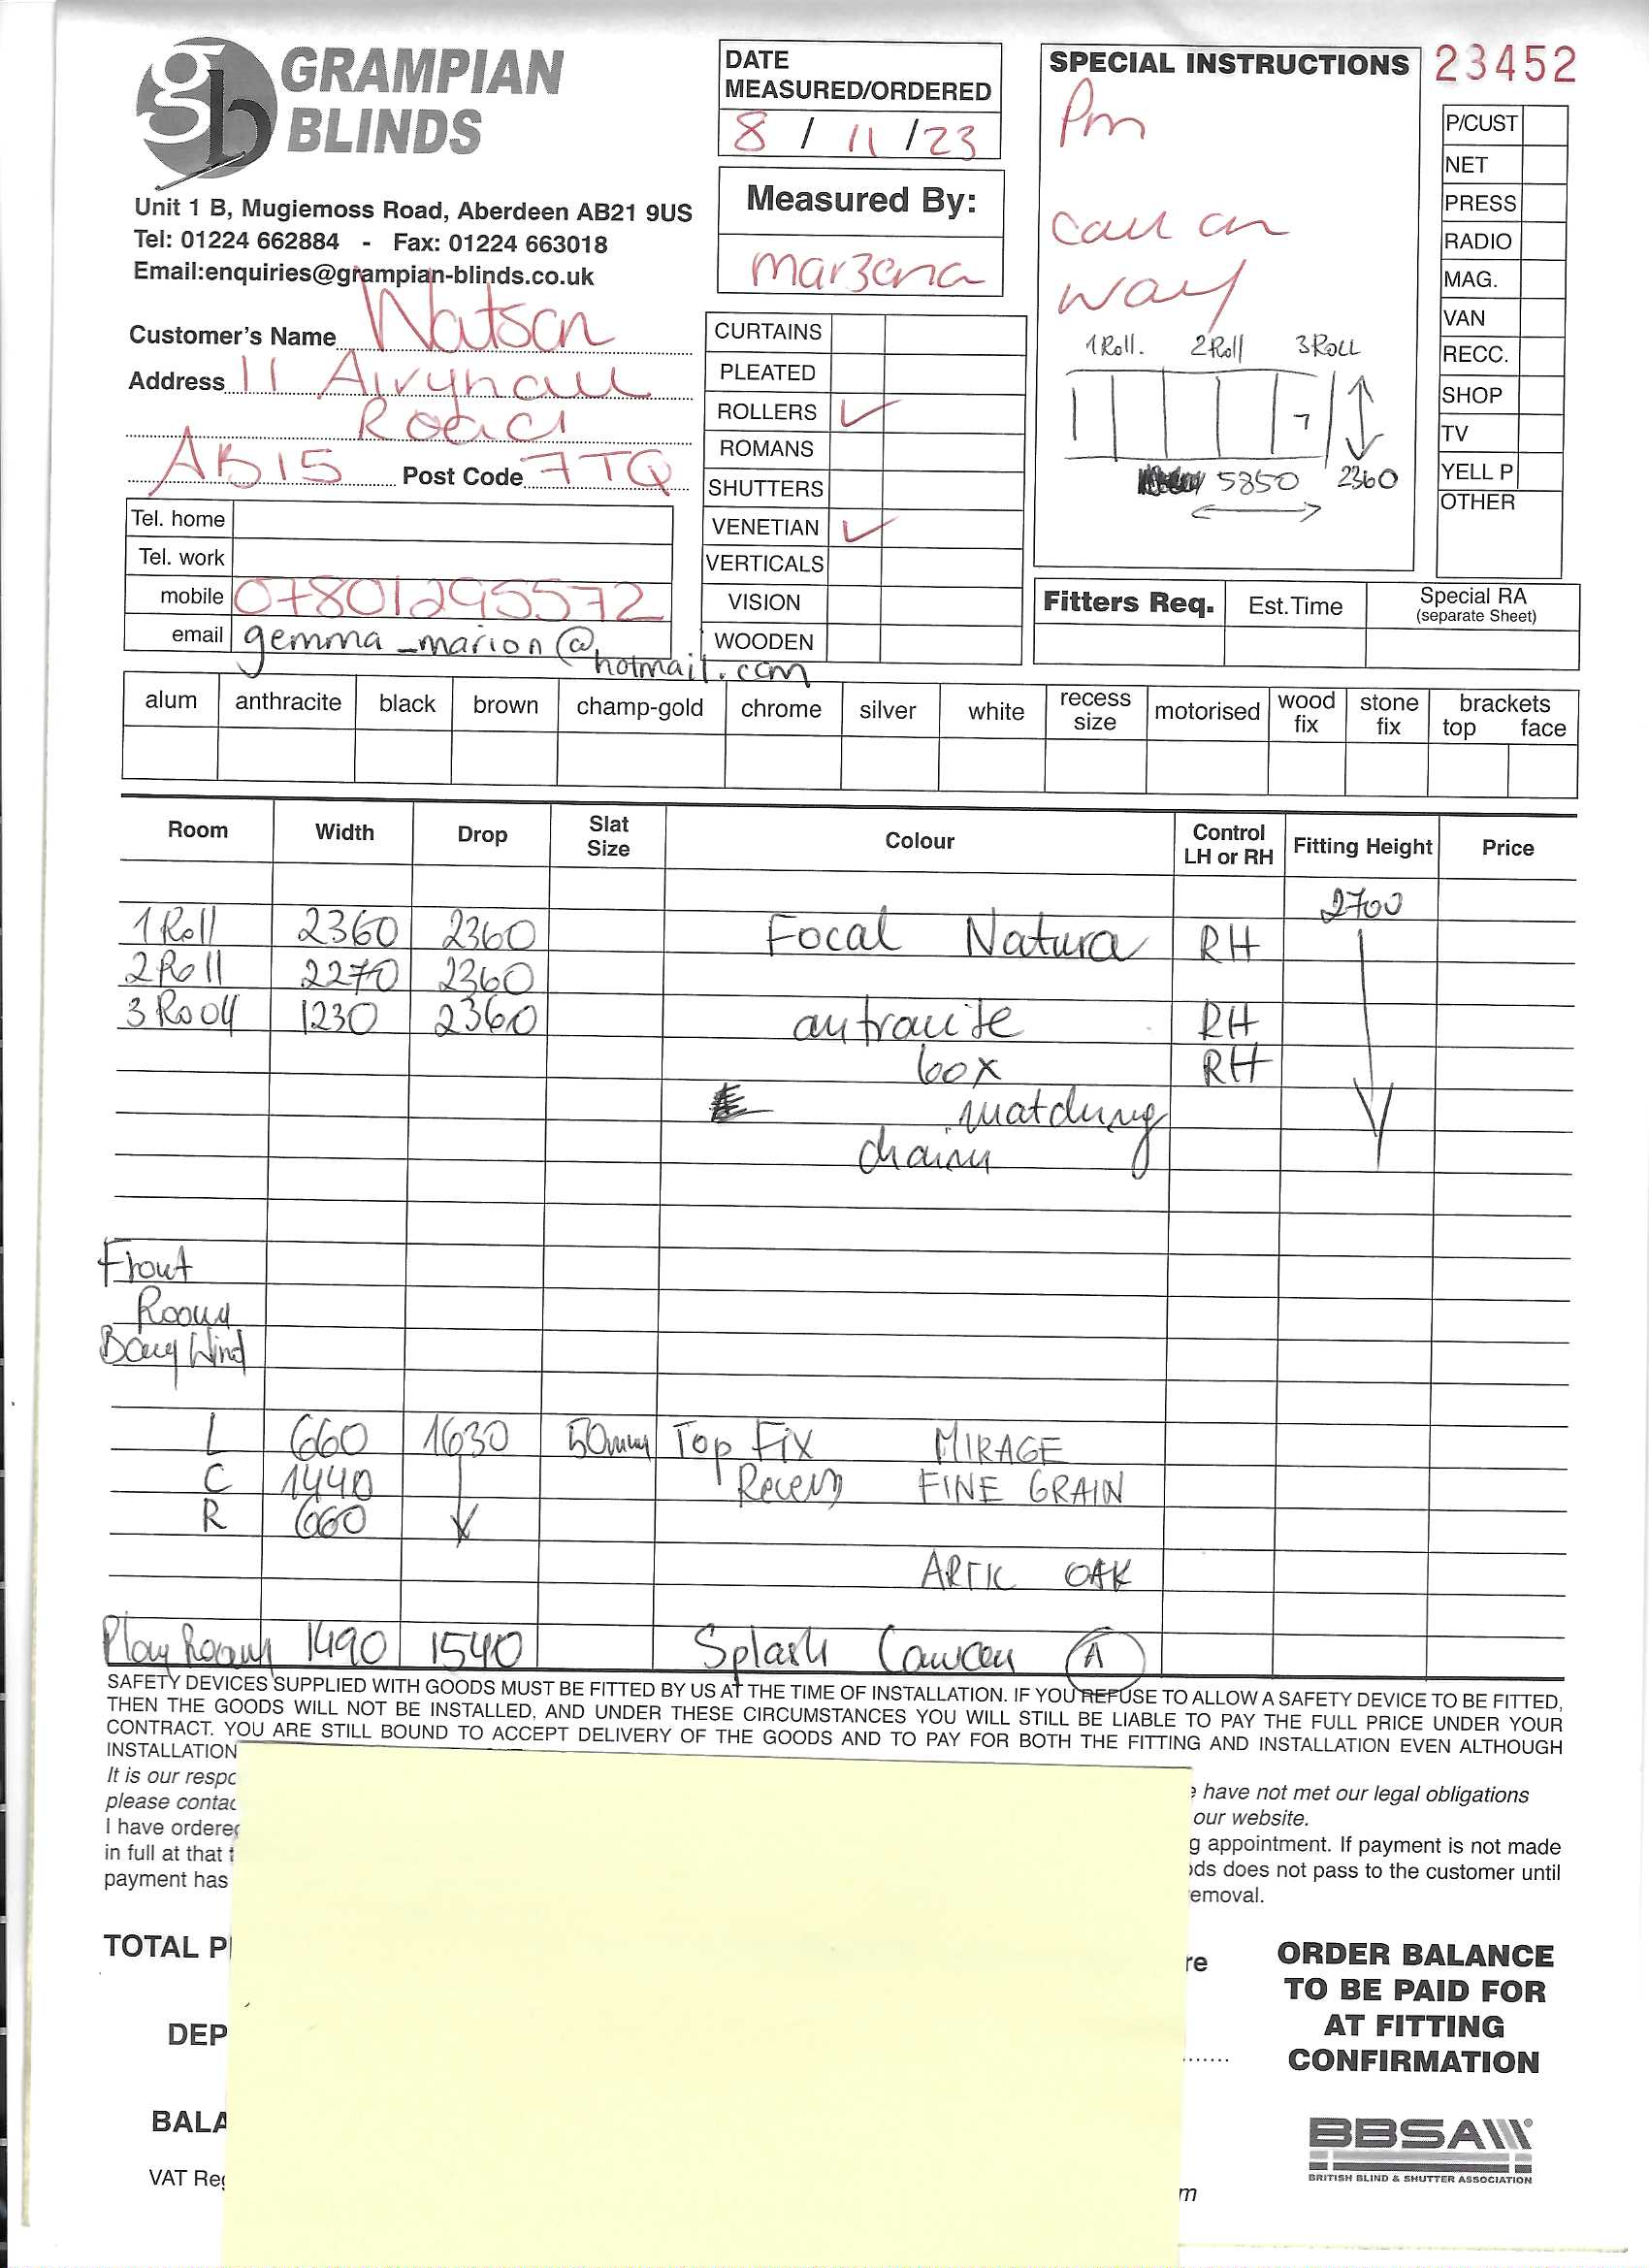 gb GRAMPIAN BLINDS
Unit 1 B, Mugiemoss Road, Aberdeen AB21 9US
Tel: 01224 662884 - Fax: 01224 663018
Email:enquiries@grampian-blinds.co.uk
Customer's Name Watson
Address 11 Airyhall
Road
AB15 Post Code 7TQ
Tel. home
Tel. work
mobile 07801295572
email gemma_marion@
hotmail.com
DATE
MEASURED/ORDERED
8 / 11 / 23
Measured By:
Marzena
CURTAINS
PLEATED
ROLLERS ✓
ROMANS
SHUTTERS
VENETIAN ✓
VERTICALS
VISION
WOODEN
SPECIAL INSTRUCTIONS
Pm
call on
way
1 Roll. 2 Roll 3 ROLL
5850 2360
23452
P/CUST
NET
PRESS
RADIO
MAG.
VAN
RECC.
SHOP
TV
YELL P
OTHER
Fitters Req. Est.Time Special RA
(separate Sheet)
alum anthracite black brown champ-gold chrome silver white recess size motorised wood fix stone fix brackets top face
Room Width Drop Slat Size Colour Control LH or RH Fitting Height Price
2700
1 Roll 2360 2360 Focal Natura RH
2 Roll 2270 2360
3 Rooll 1230 2360 antracite RH
box RH
matching
chain
Front
Room
Bay Wind
L 660 1630 50mm Top Fix MIRAGE
C 1440 Recess FINE GRAIN
R 660
ARTIC OAK
Play Room 1490 1540 Splash A
SAFETY DEVICES SUPPLIED WITH GOODS MUST BE FITTED BY US AT THE TIME OF INSTALLATION. IF YOU REFUSE TO ALLOW A SAFETY DEVICE TO BE FITTED,
THEN THE GOODS WILL NOT BE INSTALLED, AND UNDER THESE CIRCUMSTANCES YOU WILL STILL BE LIABLE TO PAY THE FULL PRICE UNDER YOUR
CONTRACT. YOU ARE STILL BOUND TO ACCEPT DELIVERY OF THE GOODS AND TO PAY FOR BOTH THE FITTING AND INSTALLATION EVEN ALTHOUGH
INSTALLATION
It is our respo
please contac
I have ordere
in full at that
payment has
have not met our legal obligations
our website.
g appointment. If payment is not made
ds does not pass to the customer until
emoval.
TOTAL P
DEP
BALA
VAT Reg
re
m
ORDER BALANCE
TO BE PAID FOR
AT FITTING
CONFIRMATION
BBSA
BRITISH BLIND & SHUTTER ASSOCIATION